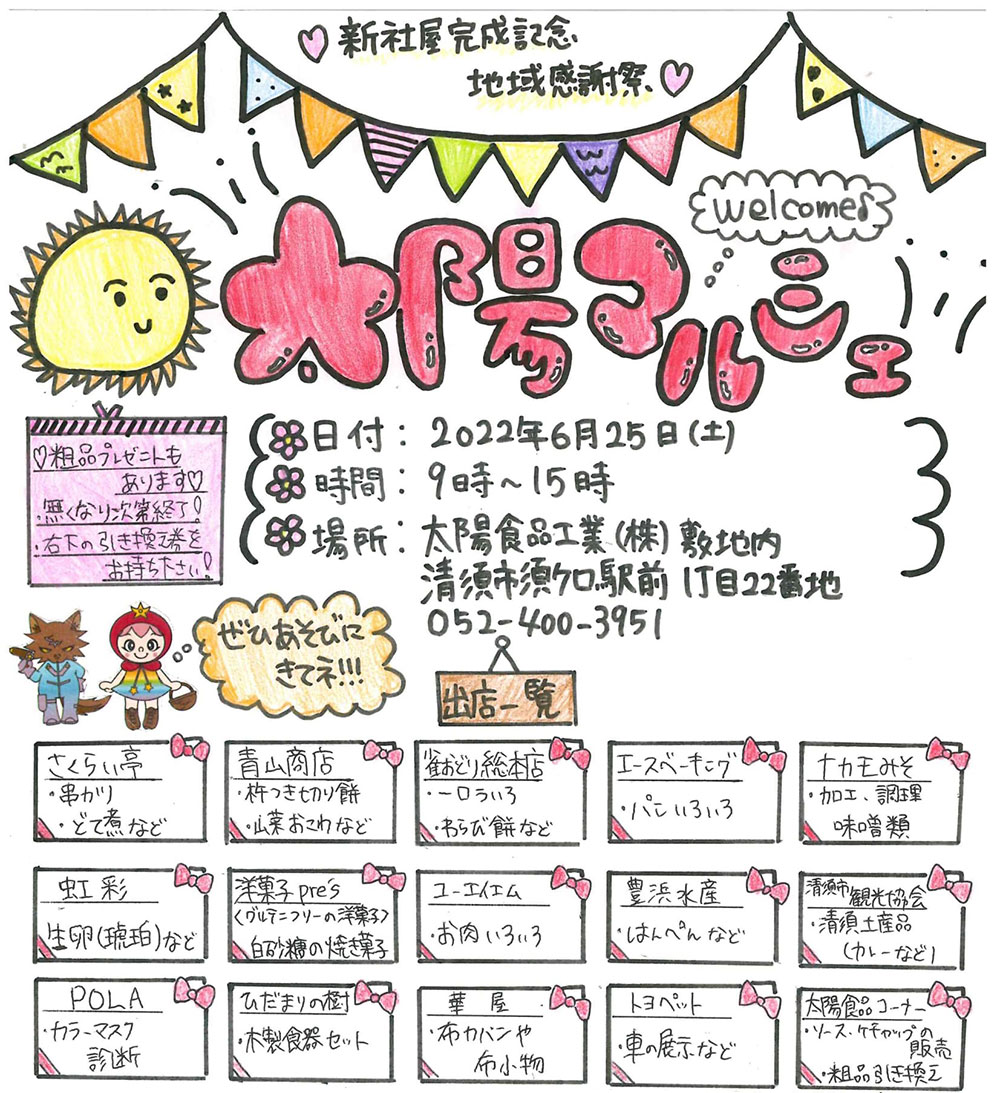 新社屋完成記念
地域感謝祭
welcome♪
太陽マルシェ
♡粗品プレゼントも
あります♡
・無くなり次第終了!
・右下の引き換え券を
お持ち下さい!
日付：2022年6月25日(土)
時間：9時～15時
場所：太陽食品工業(株)敷地内
清須市須ケ口駅前1丁目22番地
052-400-3951
ぜひあそびに
きてネ!!!
出店一覧
さくらい亭
・串カツ
・どて煮など
青山商店
・杵つき切り餅
・山菜おこわなど
雀おどり総本店
・一口ういろ
・わらび餅など
エースベーキング
・パンいろいろ
ナカモみそ
・加工、調理
味噌類
虹彩
生卵(琥珀)など
洋菓子pre's
〈グルテンフリーの洋菓子〉
白砂糖の焼き菓子
ユーエイエム
・お肉いろいろ
豊浜水産
・はんぺんなど
清須市観光協会
・清須土産品
(カレーなど)
POLA
・カラーマスク
診断
ひだまりの樹
・木製食器セット
華屋
・布カバンや
布小物
トヨペット
・車の展示など
太陽食品コーナー
・ソース、ケチャップの
販売
・粗品引き換え